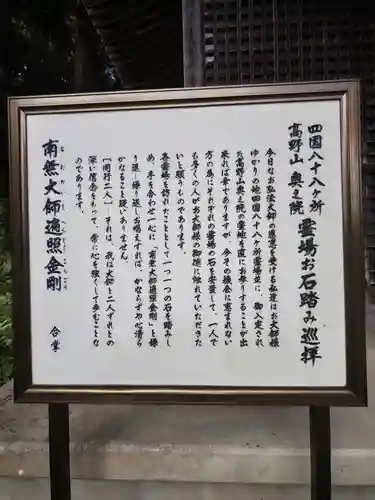 四国八十八ヶ所
高野山 奥之院
霊場お石踏み巡拝
今日なお弘法大師の慈恵を受ける私達はお大師様
ゆかりの地四国八十八ヶ所霊場並に、御入定され
た高野山奥之院の霊地を直にお参りすることが出
来れば幸でありますが、今その機会に恵まれない
方の為にそれぞれの霊場の石を安置して、一人で
も多くの人がお大師様の御徳に触れていただきた
いと願うものであります。
各霊場を訪れたこととして一つ一つの石を踏みし
め、手を合わせ一心に「南無大師遍照金剛」と繰
り返し繰り返しお唱えすれば、かならずや心清ら
かなること疑いありません。
「同行二人」それは、我は大師と二人ずれとの
深い信念をもって、常に心を強くして歩むことな
のであります。
南無大師遍照金剛
なむだいしへんじょうこんごう
合掌